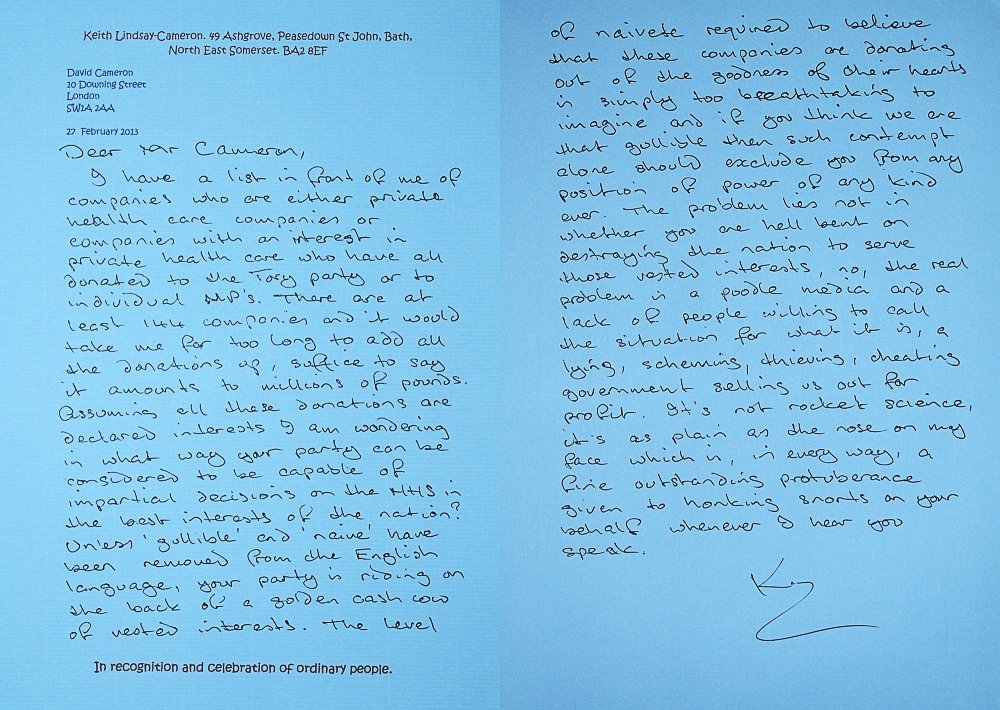 Keith Lindsay-Cameron. 49 Ashgrove, Peasedown St John, Bath,
North East Somerset. BA2 8EF
David Cameron
10 Downing Street
London
SW1A 2AA
27 February 2013
Dear Mr Cameron,
I have a list in front of me of
companies who are either private
health care companies or
companies with an interest in
private health care who have all
donated to the Tory party or to
individual MP's. There are at
least 144 companies and it would
take me far too long to add all
the donations up, suffice to say
it amounts to millions of pounds.
Assuming all these donations are
declared interests I am wondering
in what way your party can be
considered to be capable of
impartial decisions on the NHS in
the best interests of the nation?
Unless 'gullible' and 'naive' have
been removed from the English
language, your party is riding on
the back of a golden cash cow
of vested interests. The level
In recognition and celebration of ordinary people.
of naivete required to believe
that these companies are donating
out of the goodness of their hearts
is simply too breathtaking to
imagine and if you think we are
that gullible then such contempt
alone should exclude you from any
position of power of any kind
ever. The problem lies not in
whether you are hell bent on
destroying the nation to serve
those vested interests, no, the real
problem is a poodle media and a
lack of people willing to call
the situation for what it is, a
lying, scheming, thieving, cheating
government selling us out for
profit. It's not rocket science,
it's as plain as the nose on my
face which is, in every way, a
fine outstanding protuberance
given to honking snorts on your
behalf whenever I hear you
speak.